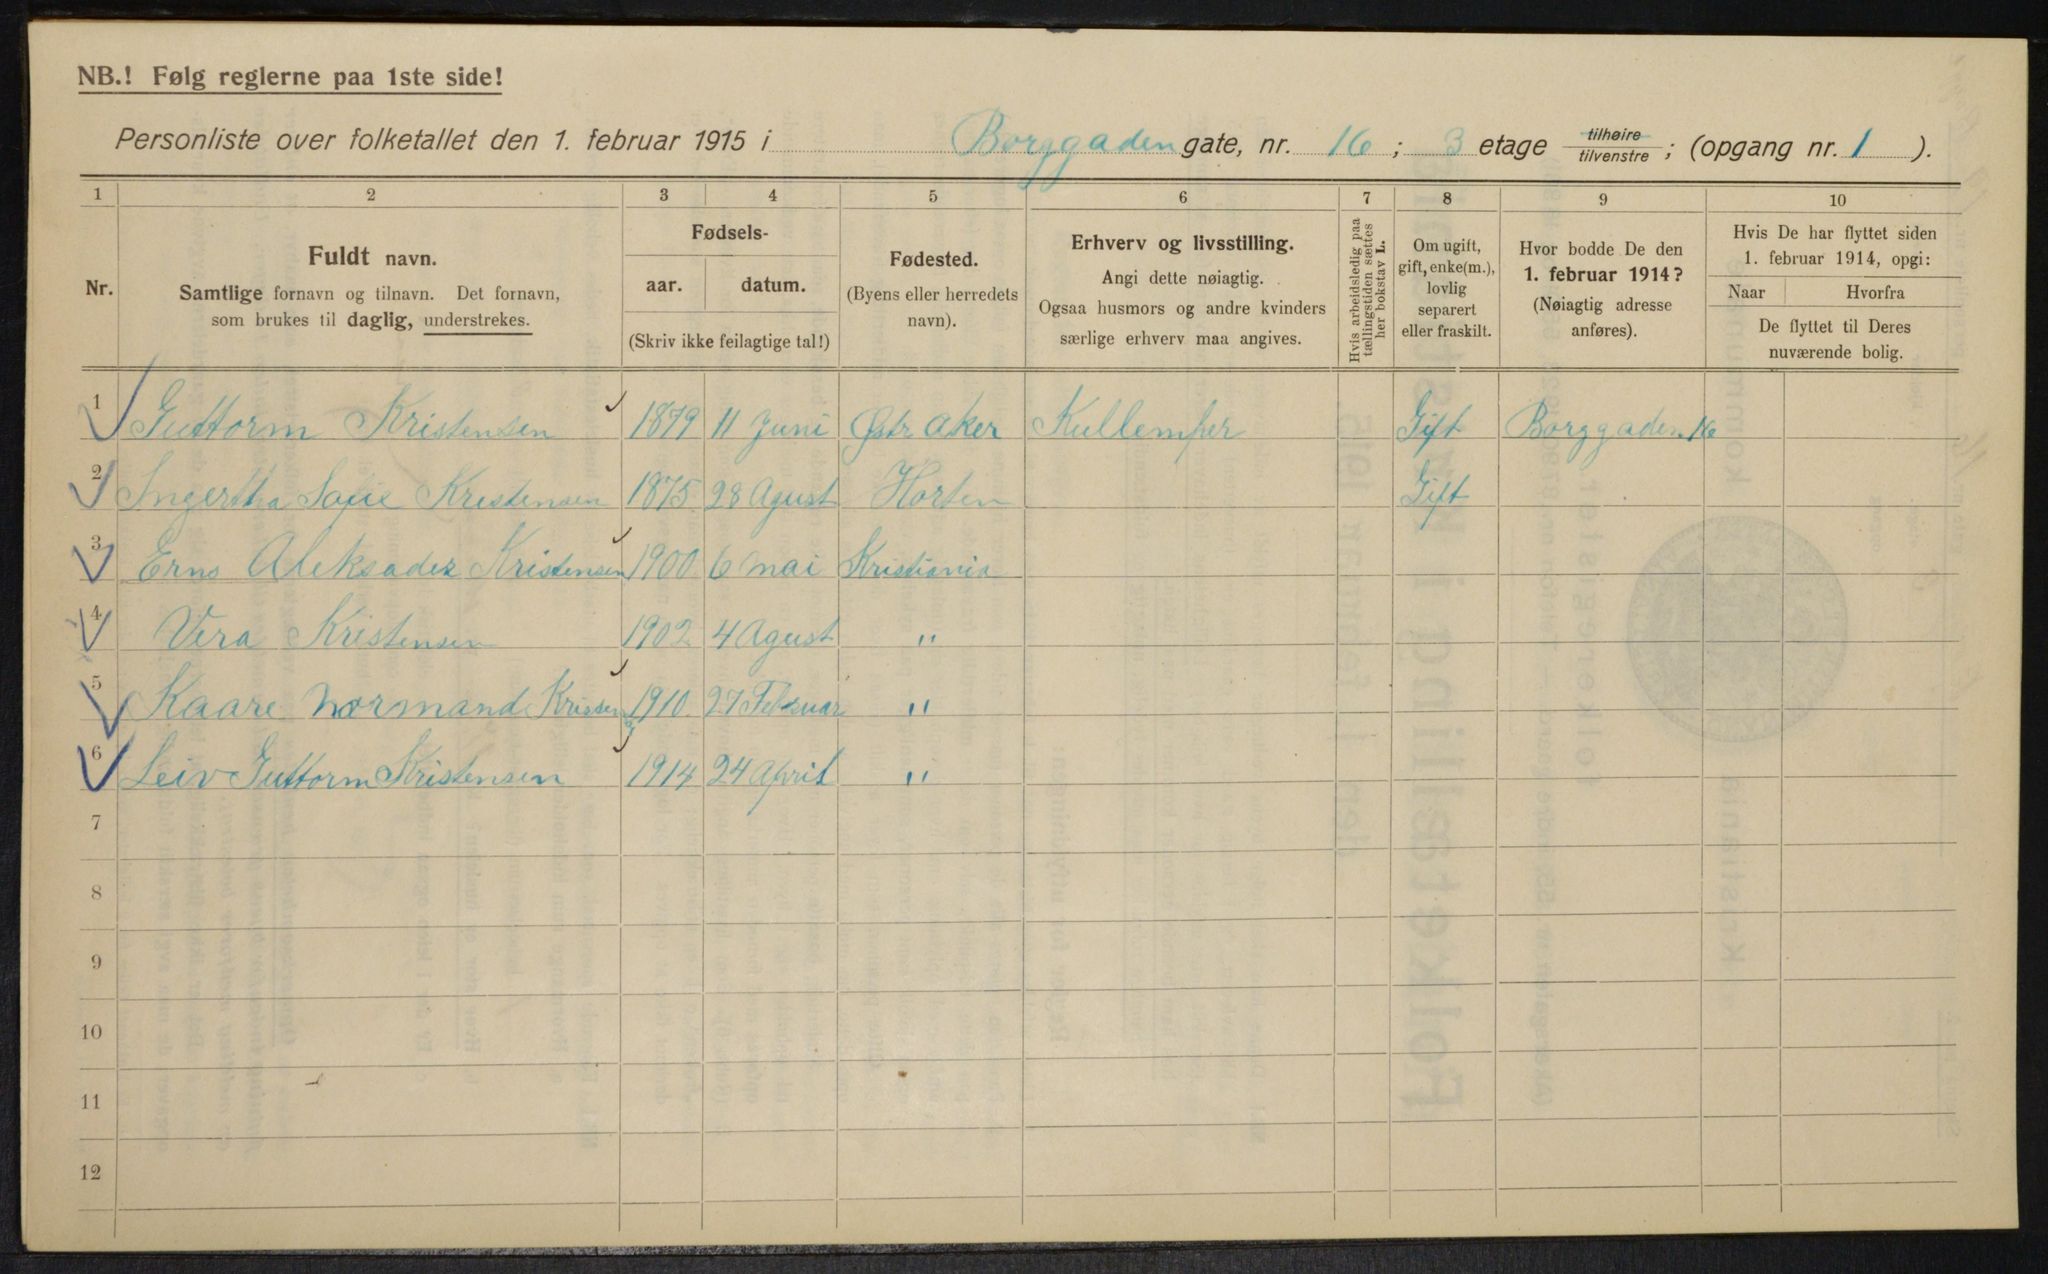 NB.! Følg reglerne paa 1ste side!
Personliste over folketallet den 1. februar 1915 i Borggaden gate, nr. 16 ; 3 etage tilhøire tilvenstre ; (opgang nr. 1 ).
1 2 3 4 5 6 7 8 9 10
Nr.
Fuldt navn.
Samtlige fornavn og tilnavn. Det fornavn,
som brukes til daglig, understrekes.
Fødsels-
aar. datum.
(Skriv ikke feilagtige tal!)
Fødested.
(Byens eller herredets
navn).
Erhverv og livsstilling.
Angi dette nøiagtig.
Ogsaa husmors og andre kvinders
særlige erhverv maa angives.
Hvis arbeidsledig paa
tællingstiden sættes
her bokstav L.
Om ugift,
gift, enke(m.),
lovlig
separert
eller fraskilt.
Hvor bodde De den
1. februar 1914?
(Nøiagtig adresse
anføres).
Hvis De har flyttet siden
1. februar 1914, opgi:
Naar Hvorfra
De flyttet til Deres
nuværende bolig.
1 Guttorm Kristensen 1879 11 Juni Østr Aker Kullemper Gift Borggaden 16
2 Ingertha Sofie Kristensen 1875 28 Agust Horten Gift
3 Erns Aleksader Kristensen 1900 6 mai Kristiania
4 Vera Kristensen 1902 4 Agust "
5 Kaare Normand 1910 27 Februar "
6 Leiv Guttorm Kristensen 1914 24 April "
7
8
9
10
11
12